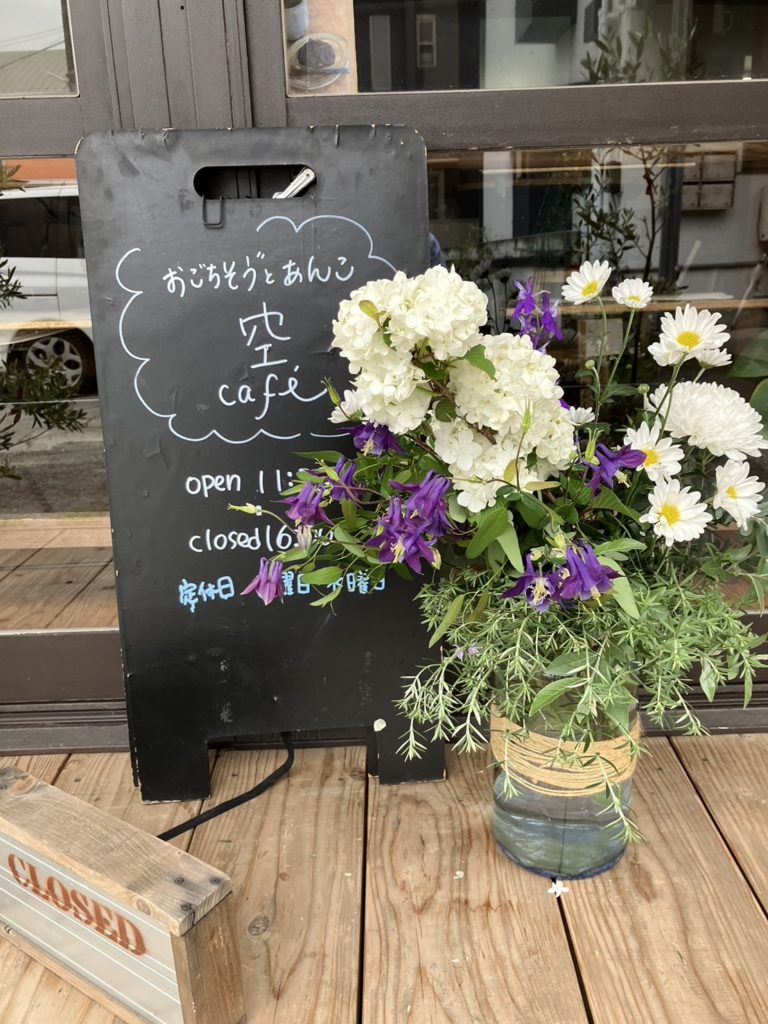 おごちそうとあんこ
空
café
open 11:
closed 16:
定休日 曜日 水曜日
CLOSED